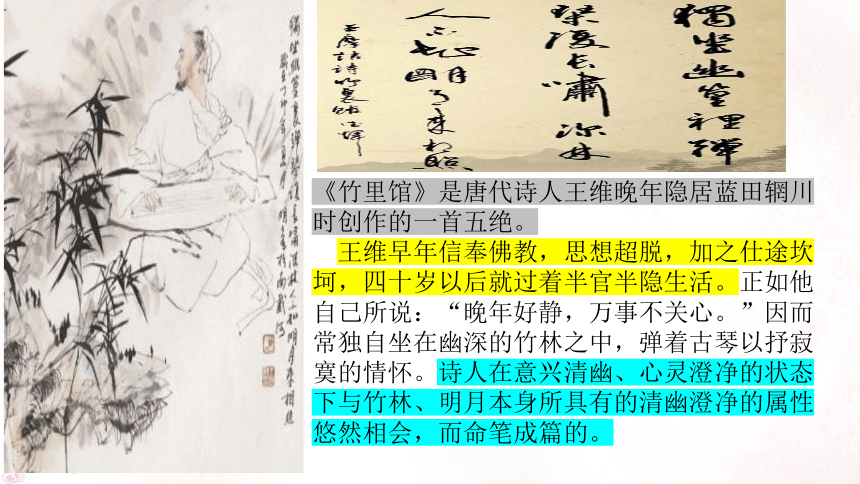 獨坐幽篁裏彈琴復長嘯深林人不知明月來相照
獨坐幽篁裡彈
琴復長嘯深林
人不知明月來相照
王摩詰詩竹裏館
《竹里馆》是唐代诗人王维晚年隐居蓝田辋川
时创作的一首五绝。
王维早年信奉佛教，思想超脱，加之仕途坎
坷，四十岁以后就过着半官半隐生活。正如他
自己所说：“晚年好静，万事不关心。”因而
常独自坐在幽深的竹林之中，弹着古琴以抒寂
寞的情怀。诗人在意兴清幽、心灵澄净的状态
下与竹林、明月本身所具有的清幽澄净的属性
悠然相会，而命笔成篇的。